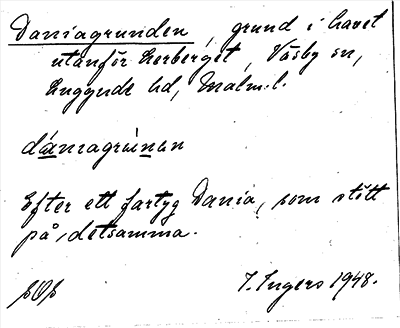 Daniagrunden, grund i havet
utanför Lerberget, Väsby sn,
Luggude hd, Malm.l.
dániagrùnən
Efter ett fartyg Dania, som stött
på detsamma.
I. Ingers 1948.